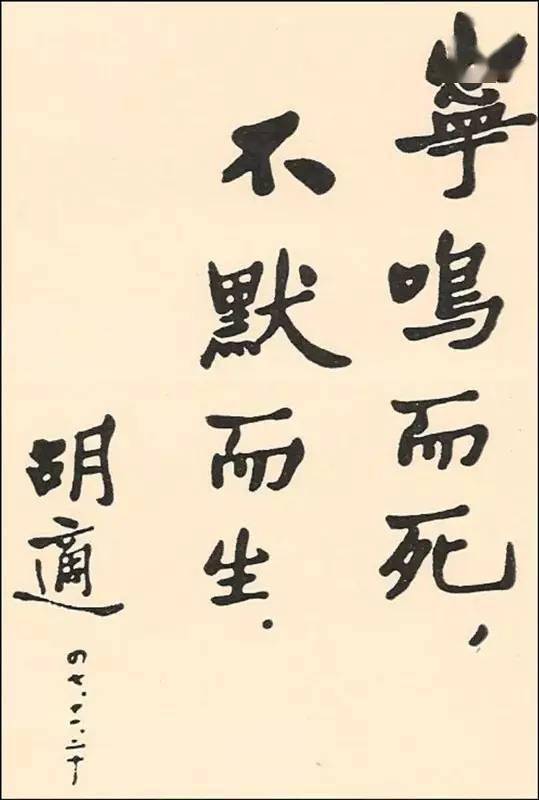 寧鳴而死，
不默而生.
胡適
四七.